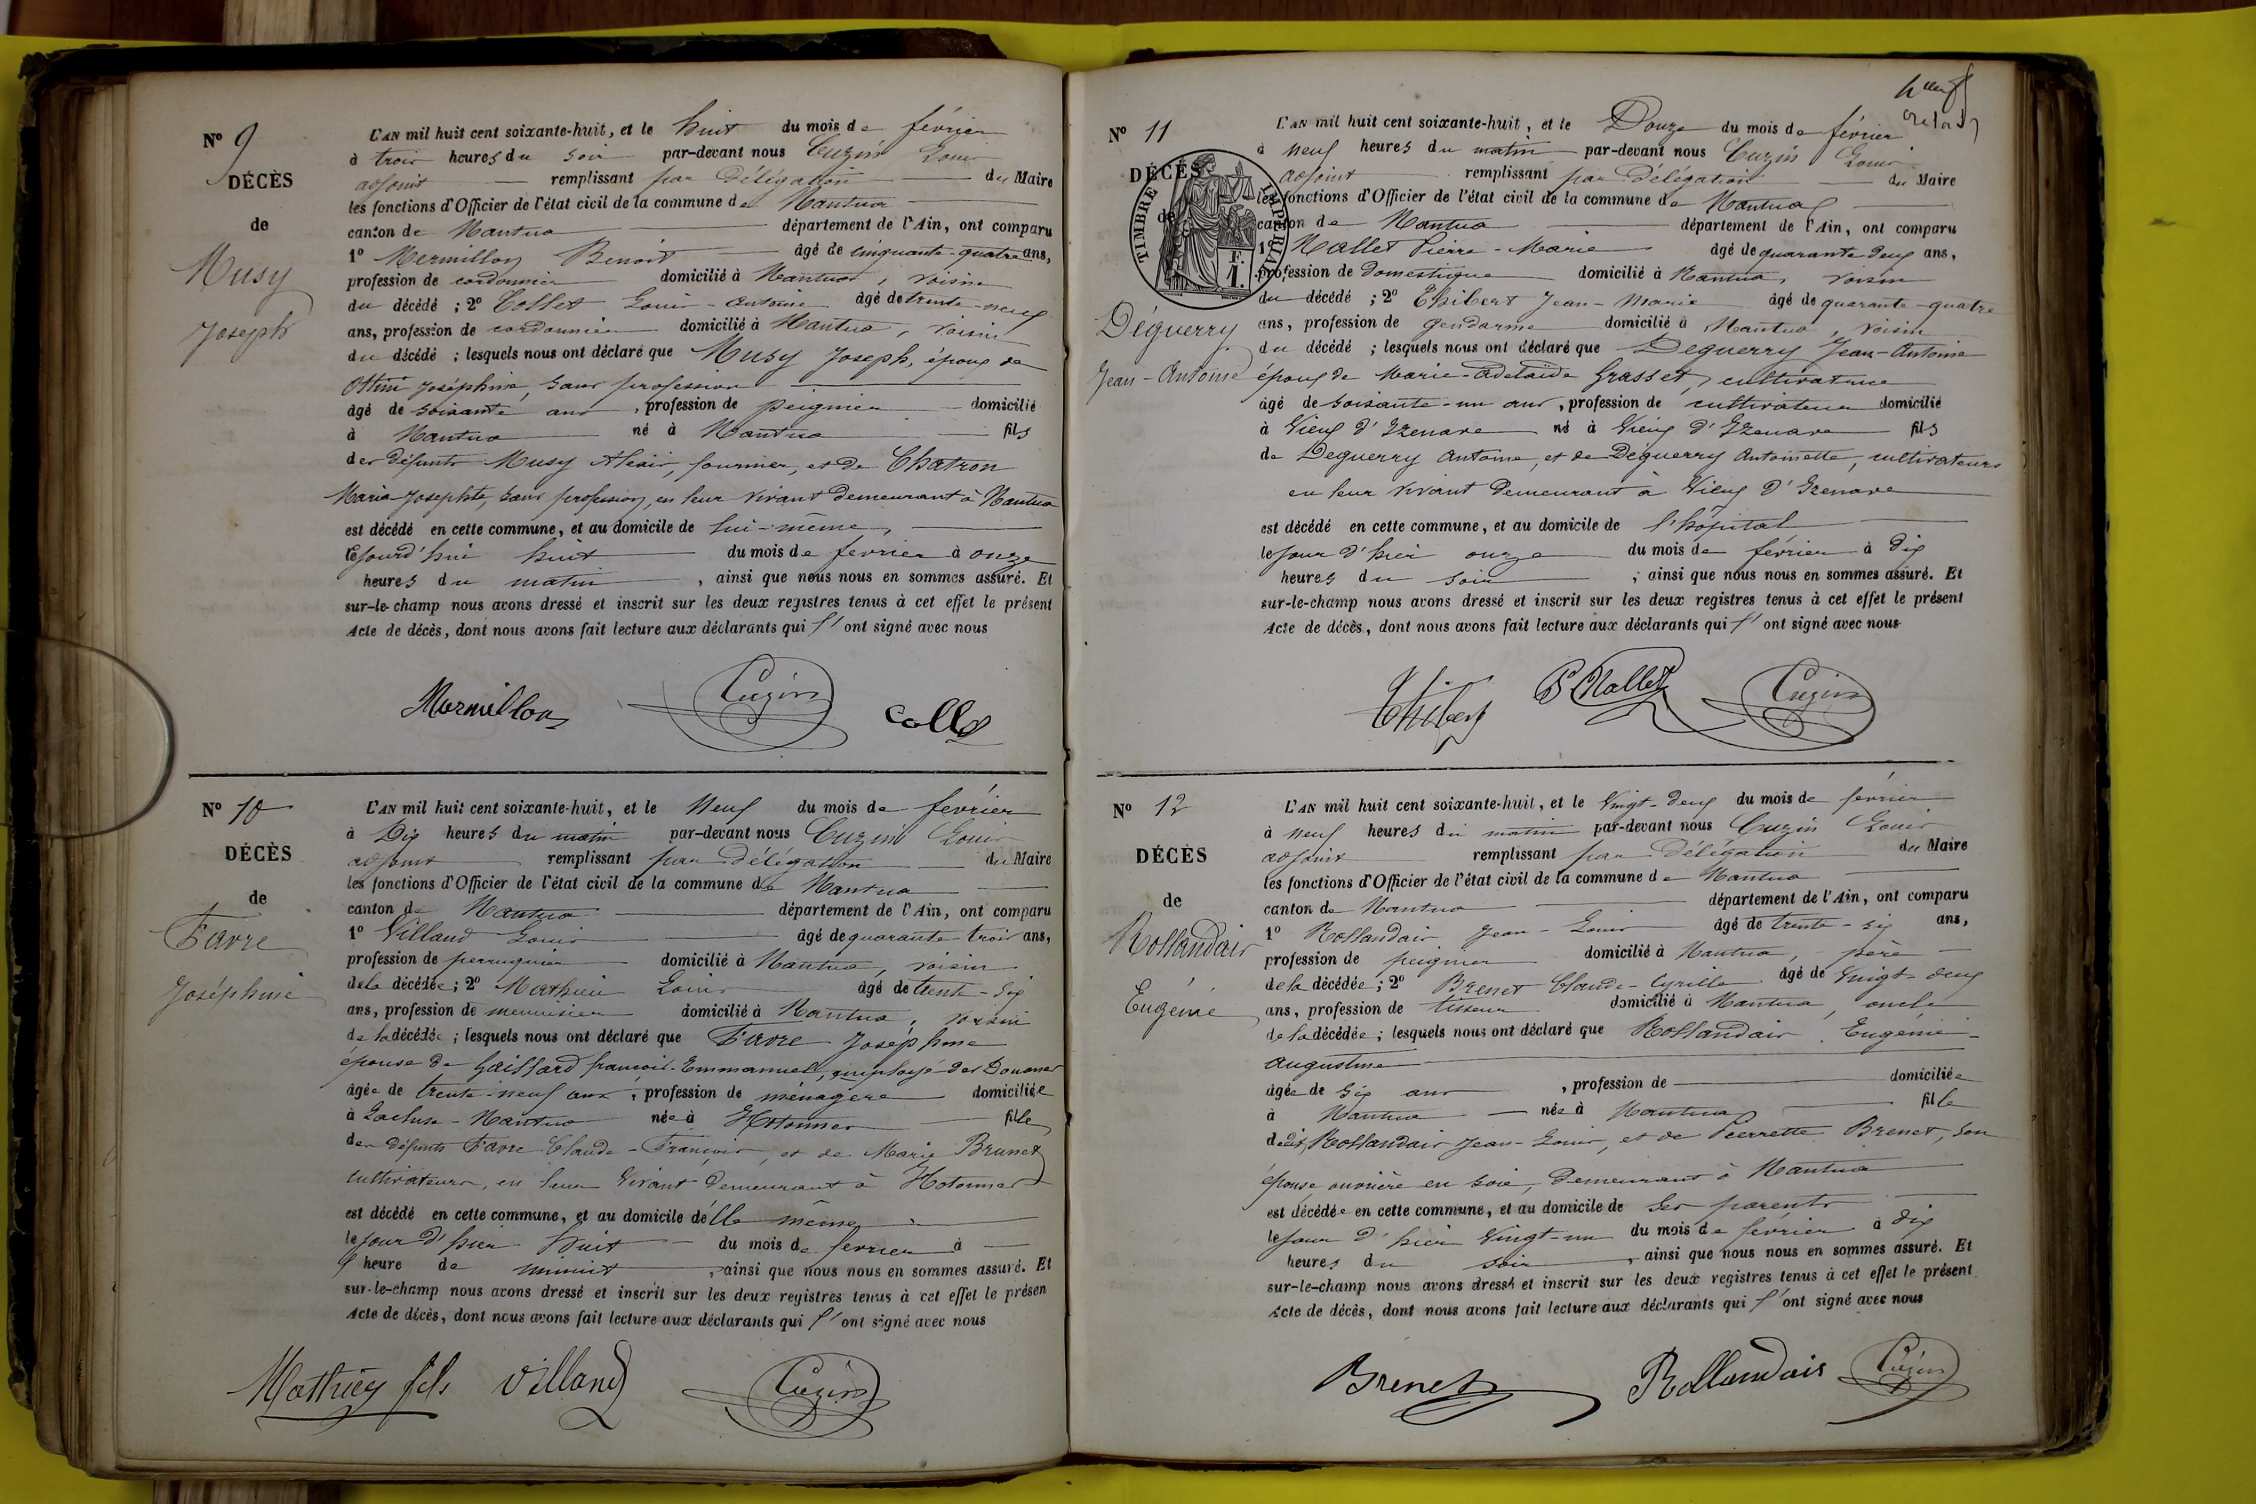 N° 9
DÉCÈS
de
Musy
Joseph
L'AN mil huit cent soixante-huit, et le huit du mois de février
à trois heures du soir par-devant nous Cuzin Louis
adjoint remplissant par délégation du Maire
les fonctions d'Officier de l'état civil de la commune de Nantua
canton de Nantua département de l'Ain, ont comparu
1° Mermillon Benoit âgé de cinquante-quatre ans,
profession de cordonnier domicilié à Nantua, voisin
du décédé ; 2° Collet Louis-Antoine âgé de trente-neuf
ans, profession de cordonnier domicilié à Nantua, voisin
du décédé ; lesquels nous ont déclaré que Musy Joseph, époux de
Joséphine, sans profession
âgé de soixante ans, profession de peignier domicilié
à Nantua né à Nantua fils
des défunts Musy Alexis, fournier, et de Chatron
Marie-Josephte, sans profession, en leur vivant demeurant à Nantua
est décédé en cette commune, et au domicile de lui-même,
le jourd'hui huit du mois de février à onze
heures du matin, ainsi que nous nous en sommes assuré. Et
sur-le-champ nous avons dressé et inscrit sur les deux registres tenus à cet effet le présent
Acte de décès, dont nous avons fait lecture aux déclarants qui l'ont signé avec nous
Mermillon Cuzin Collet
N° 10
DÉCÈS
de
Favre
Joséphine
L'AN mil huit cent soixante-huit, et le neuf du mois de février
à Dix heures du matin par-devant nous Cuzin Louis
adjoint remplissant par délégation du Maire
les fonctions d'Officier de l'état civil de la commune de Nantua
canton de Nantua département de l'Ain, ont comparu
1° Villand Louis âgé de quarante-trois ans,
profession de perruquier domicilié à Nantua, voisin
de la décédée ; 2° Mathieu Louis âgé de trente-six
ans, profession de menuisier domicilié à Nantua, voisin
de la décédée ; lesquels nous ont déclaré que Favre Joséphine
épouse de Gaillard françois-Emmanuel, employé des Douanes
âgée de trente-neuf ans, profession de ménagère domiciliée
à Lacluse-Nantua née à Hotonnes fille
des défunts Favre Claude-François, et de Marie Brunet
cultivateurs, en leur vivant demeurant à Hotonnes
est décédé en cette commune, et au domicile d'elle même,
le jour d'hier huit du mois de février à
heure de minuit, ainsi que nous nous en sommes assuré. Et
sur-le-champ nous avons dressé et inscrit sur les deux registres tenus à cet effet le présen
Acte de décès, dont nous avons fait lecture aux déclarants qui l'ont signé avec nous
Mathieu fils Villand Cuzin
neuf
N° 11
DÉCÈS
de
TIMBRE IMPÉRIAL
F.
1.
Déguerry
Jean-Antoine
L'AN mil huit cent soixante-huit, et le Douze du mois de février
à neuf heures du matin par-devant nous Cuzin Louis
adjoint remplissant par délégation du Maire
les fonctions d'Officier de l'état civil de la commune de Nantua
canton de Nantua département de l'Ain, ont comparu
1° Mallet Pierre-Marie âgé de quarante deux ans,
profession de domestique domicilié à Nantua, voisin
du décédé ; 2° Thibert Jean-Marie âgé de quarante-quatre
ans, profession de gendarme domicilié à Nantua, voisin
du décédé ; lesquels nous ont déclaré que Déguerry Jean-Antoine
époux de Marie-Adelaïde Grasset, cultivatrice
âgé de soixante-un ans, profession de cultivateur domicilié
à Vieux d'Izenave né à Vieux d'Izenave fils
de Déguerry Antoine, et de Déguerry Antoinette, cultivateurs
en leur vivant demeurant à Vieux d'Izenave
est décédé en cette commune, et au domicile de l'hôpital
le jour d'hier onze du mois de février à dix
heures du soir ; ainsi que nous nous en sommes assuré. Et
sur-le-champ nous avons dressé et inscrit sur les deux registres tenus à cet effet le présent
Acte de décès, dont nous avons fait lecture aux déclarants qui l'ont signé avec nous
Thibert P Mallet Cuzin
N° 12
DÉCÈS
de
Rollandais
Eugénie
L'AN mil huit cent soixante-huit, et le Vingt-deux du mois de février
à neuf heures du matin par-devant nous Cuzin Louis
adjoint remplissant par délégation du Maire
les fonctions d'Officier de l'état civil de la commune de Nantua
canton de Nantua département de l'Ain, ont comparu
1° Rollandais Jean-Louis âgé de trente-six ans,
profession de peignier domicilié à Nantua, père
de la décédée ; 2° Brenet Claude-Cyrille âgé de Vingt-deux
ans, profession de tisseur domicilié à Nantua, oncle
de la décédée ; lesquels nous ont déclaré que Rollandais Eugénie-
Augustine
âgée de six ans, profession de domiciliée
à Nantua née à Nantua fille
dedit Rollandais Jean-Louis, et de Pierrette Brenet, son
épouse ouvrière en soie, demeurant à Nantua
est décédée en cette commune, et au domicile de ses parents
le jour d'hier Vingt-un du mois de février à dix
heures du soir, ainsi que nous nous en sommes assuré. Et
sur-le-champ nous avons dressé et inscrit sur les deux registres tenus à cet effet le présent
Acte de décès, dont nous avons fait lecture aux déclarants qui l'ont signé avec nous
Brenet Rollandais Cuzin